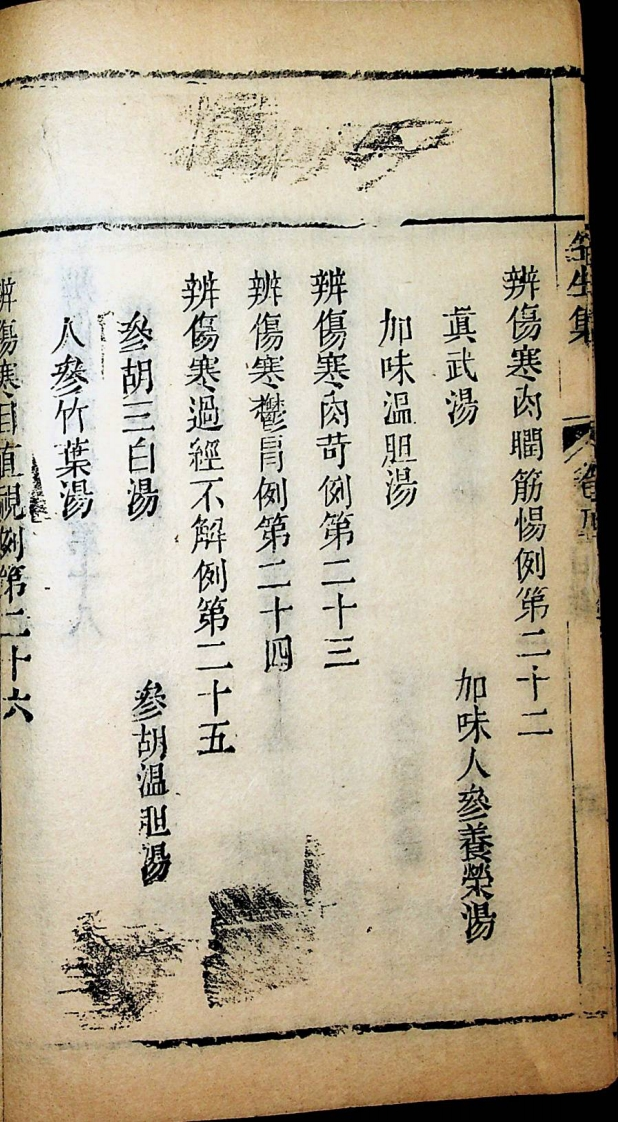 全生集
卷四
辨傷寒肉瞤筋惕例第二十二
真武湯　加味人參養榮湯
加味温胆湯
辨傷寒肉苛例第二十三
辨傷寒鬱冒例第二十四
辨傷寒過經不解例第二十五
參胡三白湯　參胡温胆湯
人參竹葉湯
辨傷寒目直視例第二十六